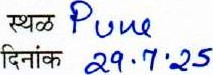 स्थळ Pune
दिनांक 29.7.25